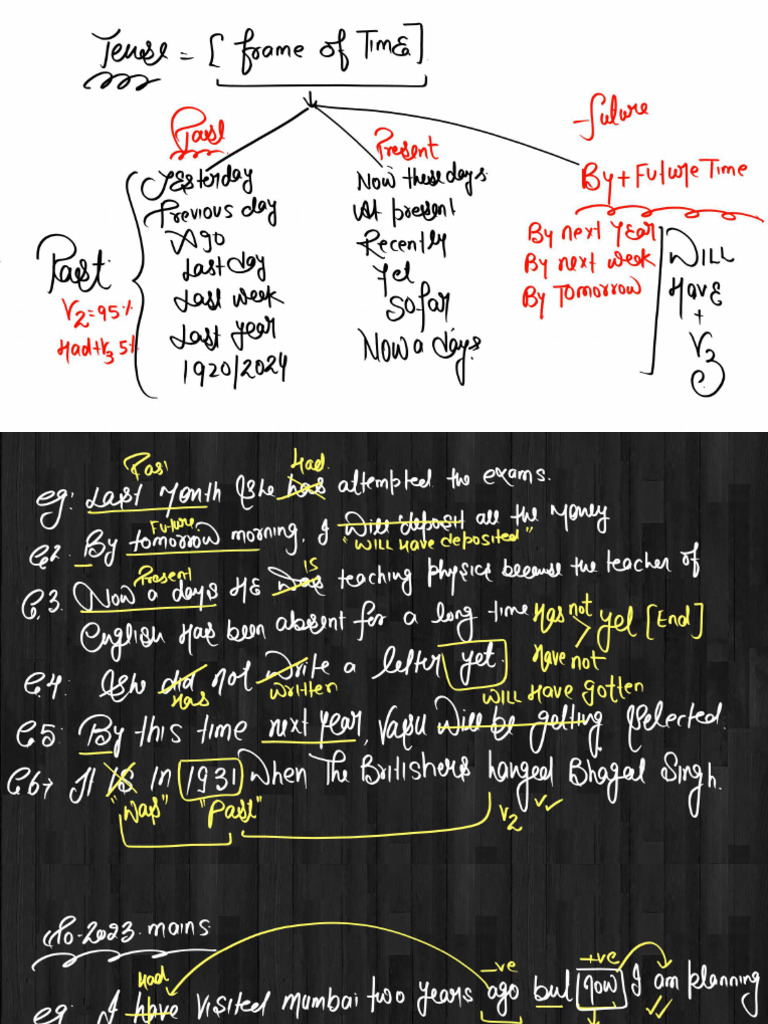 Tense = [ frame of Time ]
Past Present Future
Yesterday Now these days By + Future Time
Previous day At present By next year
Ago Recently By next week
Last day Yet By Tomorrow
Last week So far
Last year Now a days
1920/2024
Past
V2 = 95%
Had + V3 5%
Will
Have
+
V3
Past Had
eg: Last Month She has attempted the exams.
Future
E.2. By tomorrow morning, I will deposit all the money
"will have deposited"
Present is
E.3. Now a days He was teaching physics because the teacher of
English has been absent for a long time
Has not
Have not
> yet [End]
E.4. She did not write a letter yet.
Has written
will have gotten
E.5. By this time next year, Vasu will be getting selected.
E6→ It is in 1931 when the Britishers hanged Bhagat Singh.
"was" "Past" V2
Po-2023 mains
Had -ve +ve
eg: I have visited mumbai two years ago but now I am planning